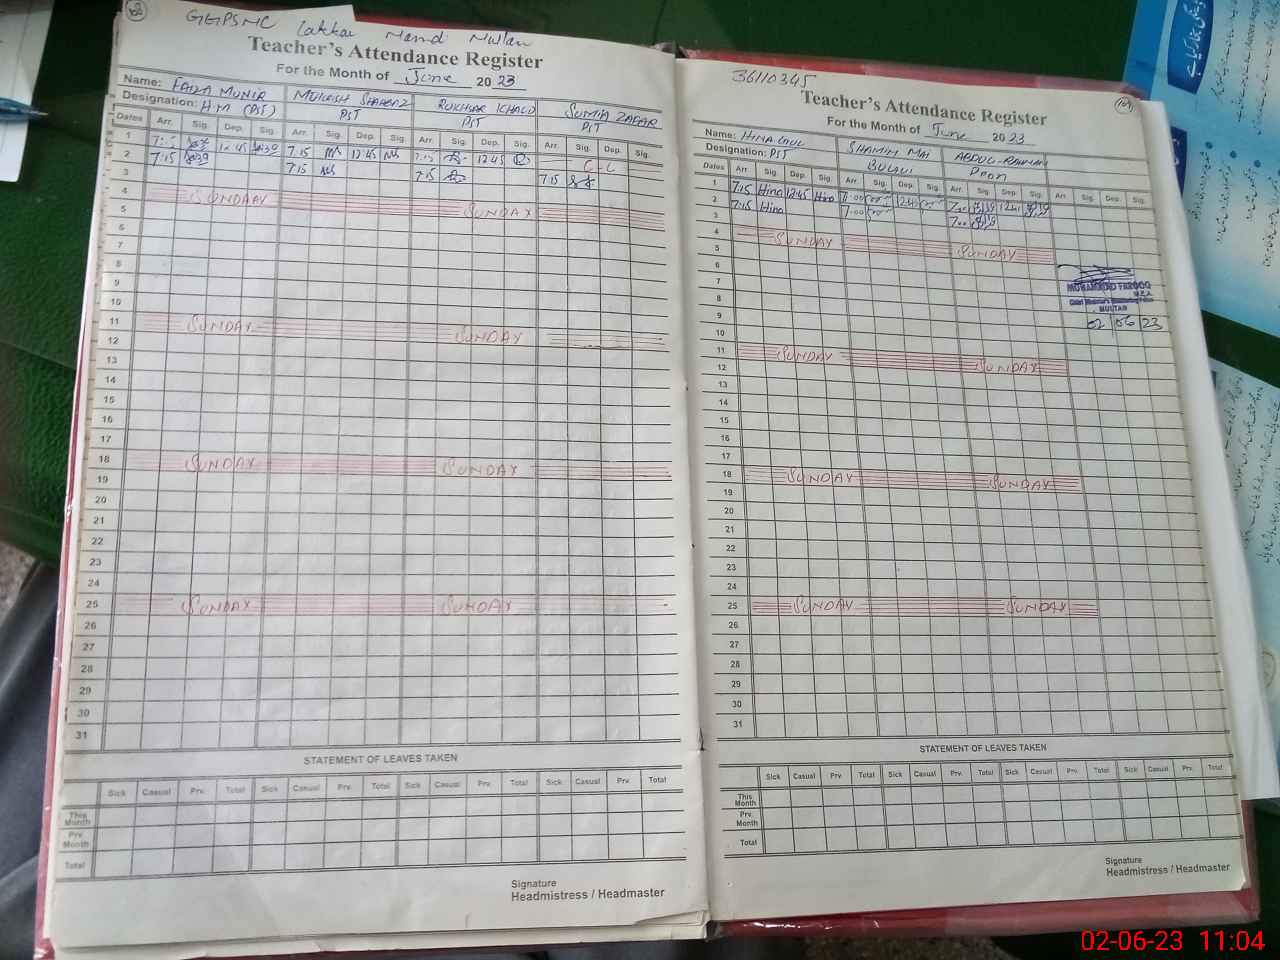 102
GGPSMC Lakkar Mandi Multan
Teacher's Attendance Register
For the Month of June 2023
Name: FAIZA MUNIR MEHWISH SHAHBAZ RUKHSAR KHALID SUMIA ZAFAR
Designation: H.M (PST) PST PST PST
Dates Arr. Sig. Dep. Sig. Arr. Sig. Dep. Sig. Arr. Sig. Dep. Sig. Arr. Sig. Dep. Sig.
1 12:45 7:15 12:45 7:15 12:45 C-L
2 7:15 7:15 7:15 7:15
3
4 SUNDAY SUNDAY
5
6
7
8
9
10
11 SUNDAY SUNDAY
12
13
14
15
16
17
18 SUNDAY SUNDAY
19
20
21
22
23
24
25 SUNDAY SUNDAY
26
27
28
29
30
31
STATEMENT OF LEAVES TAKEN
Sick Casual Prv. Total Sick Casual Prv. Total Sick Casual Prv. Total Sick Casual Prv. Total
This Month
Prv. Month
Total
Signature
Headmistress / Headmaster
36110345
Teacher's Attendance Register
For the Month of June 2023
Name: HINA GUL SHAMIM MAI ABDUL-RAHMAN
Designation: PST Peon
Dates Arr. Sig. Dep. Sig. Arr. Sig. Dep. Sig. Arr. Sig. Dep. Sig. Arr. Sig. Dep. Sig.
1 7:15 Hina 12:45 Hina 7:00
2 7:15 Hina 7:00 7:00
3
4 SUNDAY SUNDAY
5
6
7
8
MUHAMMAD FAROOQ
MULTAN
02/06/23
9
10
11 SUNDAY SUNDAY
12
13
14
15
16
17
18 SUNDAY SUNDAY
19
20
21
22
23
24
25 SUNDAY SUNDAY
26
27
28
29
30
31
STATEMENT OF LEAVES TAKEN
Sick Casual Prv. Total Sick Casual Prv. Total Sick Casual Prv. Total Sick Casual Prv. Total
This Month
Prv. Month
Total
Signature
Headmistress / Headmaster
02-06-23 11:04